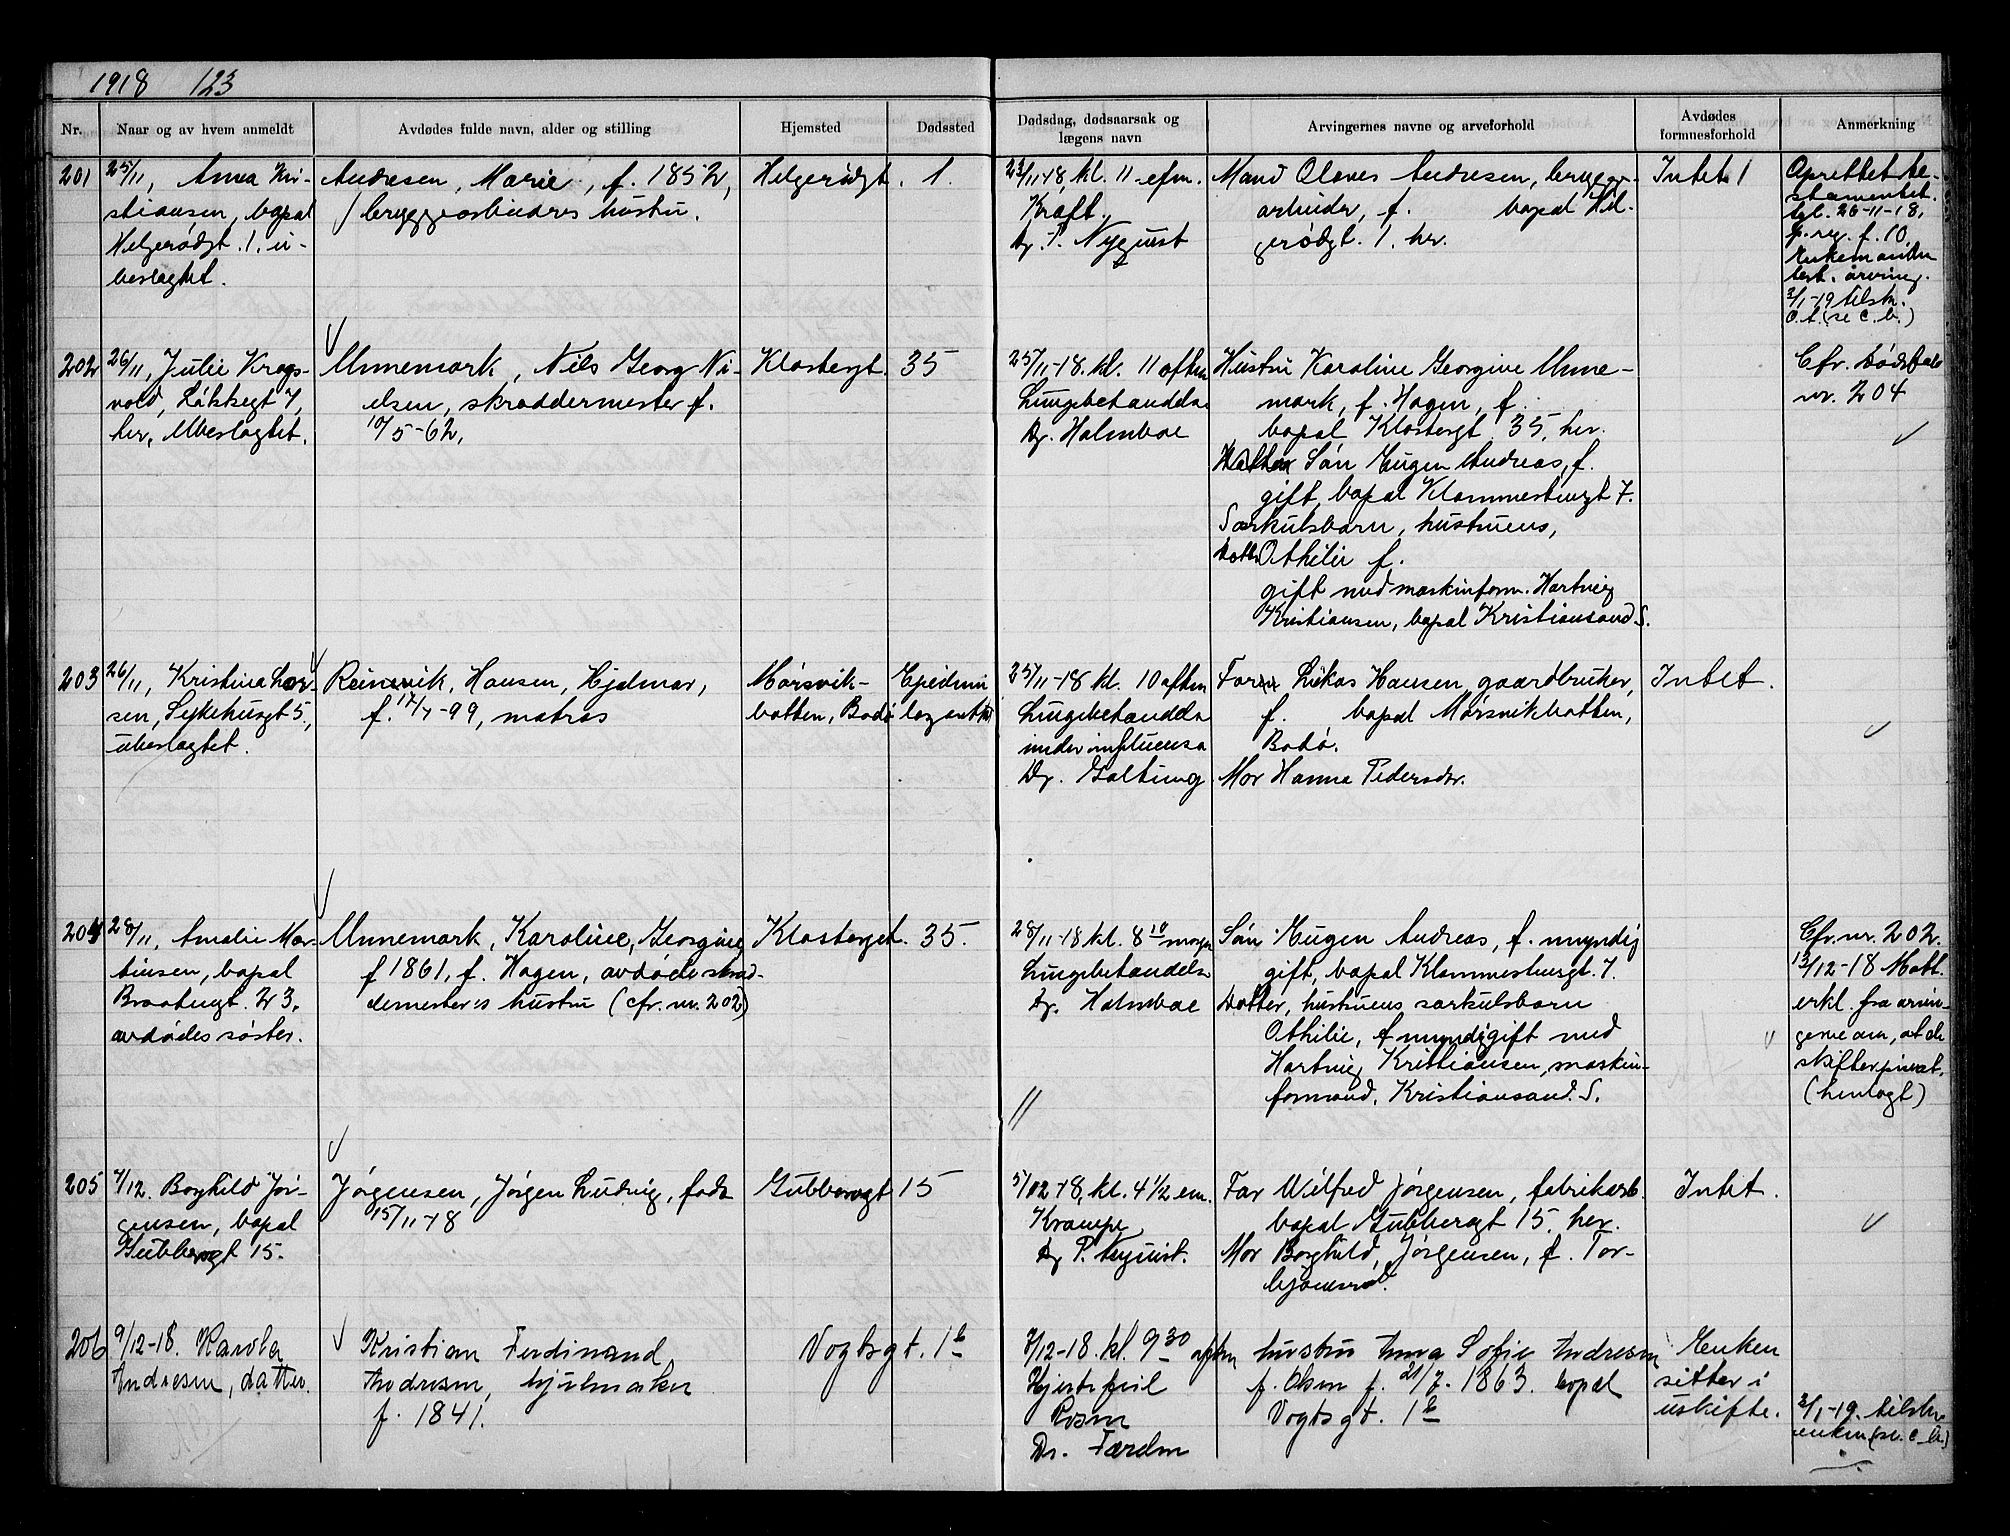 1918 123
Nr. Naar og av hvem anmeldt Avdødes fulde navn, alder og stilling Hjemsted Dødssted Dødsdag, dødsaarsak og lægens navn Arvingernes navne og arveforhold Avdødes formuesforhold Anmerkning
201
25/11, Anna Kri-
stiansen, bopæl
Helgerødgt. 1. u-
beslægtet.
Andresen, Marie, f. 1852,
bryggearbeidres hustru.
Helgerødgt. 1.
23/11-18, kl. 11 efm.
Kræft.
Dr. P. Nyquist
Mand Olaves Andresen, brygge-
arbeider, f. bopæl Hel-
gerødgt. 1. her.
Intet
Oprettet te-
stamentet.
tgl. 26-11-18,
p.reg. f. 10
Enkemanden
test. arving.
3/1-19 tilskr.
O.t. (se c.b.)
202
26/11, Julie Krogs-
vold, Løkkegt 7,
her, Ubeslægtet.
Unnemark, Nils Georg Ni-
elsen, skræddermester f.
10/5-62,
Klostergt. 35
25/11-18. kl. 11 aften
Lungebetændelse
Dr. Halmboe
Hustru Karoline Georgine Unne-
mark, f. Hagen, f.
bopæl Klostergt. 35, her.
Søn Eugen Andreas, f.
gift, bopæl Klommestensgt 7.
Særkulsbarn, hustruens,
Datter Othilie f.
gift med maskinform. Hartvig
Kristiansen, bopæl Kristiansand S.
Cfr. dødsfald
nr. 204
203
26/11, Kristina Lar-
sen, Sykehusgt 5,
ubeslægtet.
Reinsvik, Hansen, Hjalmar,
f. 17/7-99, matros
Mørsvik-
botten, Bodø
Epidemi
25/11-18 kl. 10 aften
Lungebetændelse
under influensa
Dr. Galtung
Far Lukas Hansen, gaardbruker,
f. bopæl Mørsvikbotten,
Bodø.
Mor Hanna Pedersdr.
Intet.
204
28/11, Amalie Mar-
tinsen, bopæl
Braatengt. 23.
avdødes søster.
Unnemark, Karoline, Georgine
f 1861, f. Hagen, avdøde skræd-
demesters hustru (cfr. nr. 202)
Klostergt. 35.
28/11-18 kl. 8 10 morgen
Lungebetændelse
Dr. Halmboe
Søn Eugen Andreas, f. myndig
gift, bopæl Klommestensgt. 7.
Datter, hustruens særkulsbarn
Othilie, f myndig gift med
Hartvig Kristiansen, maskin-
formand, Kristiansand. S.
Cfr. nr. 202.
13/12-18 Mott.
erkl. fra arvin-
gerne om, at de
skifter privat.
(henlagt)
205
7/12. Borghild Jør-
gensen, bopæl
Gubberogt 15.
Jørgensen, Jørgen Ludvig, født
15/11-18
Gubberogt 15
5/12-18, kl. 4 1/2 em.
Krampe
Dr P. Nyquist.
Far Wilfred Jørgensen, fabrikarb.
bopæl Gubberogt 15, her.
Mor Borghild, Jørgensen, f. Tor-
bjørnsrød.
Intet.
206
9/12-18. Karola
Andresen, datter.
Kristian Ferdinand
Andresen, hjulmaker
f. 1841.
Vogtsgt. 1b
7/12-18. kl. 9 30 aften
Hjertefeil
Rosen
Dr. Færden
hustru Anna Sofie Andresen
f. Olsen f. 21/7-1863. bopæl
Vogtsgt. 1b
Enken
sitter i
uskifte.
3/1-19. tilskr.
enken (se. c. b.)